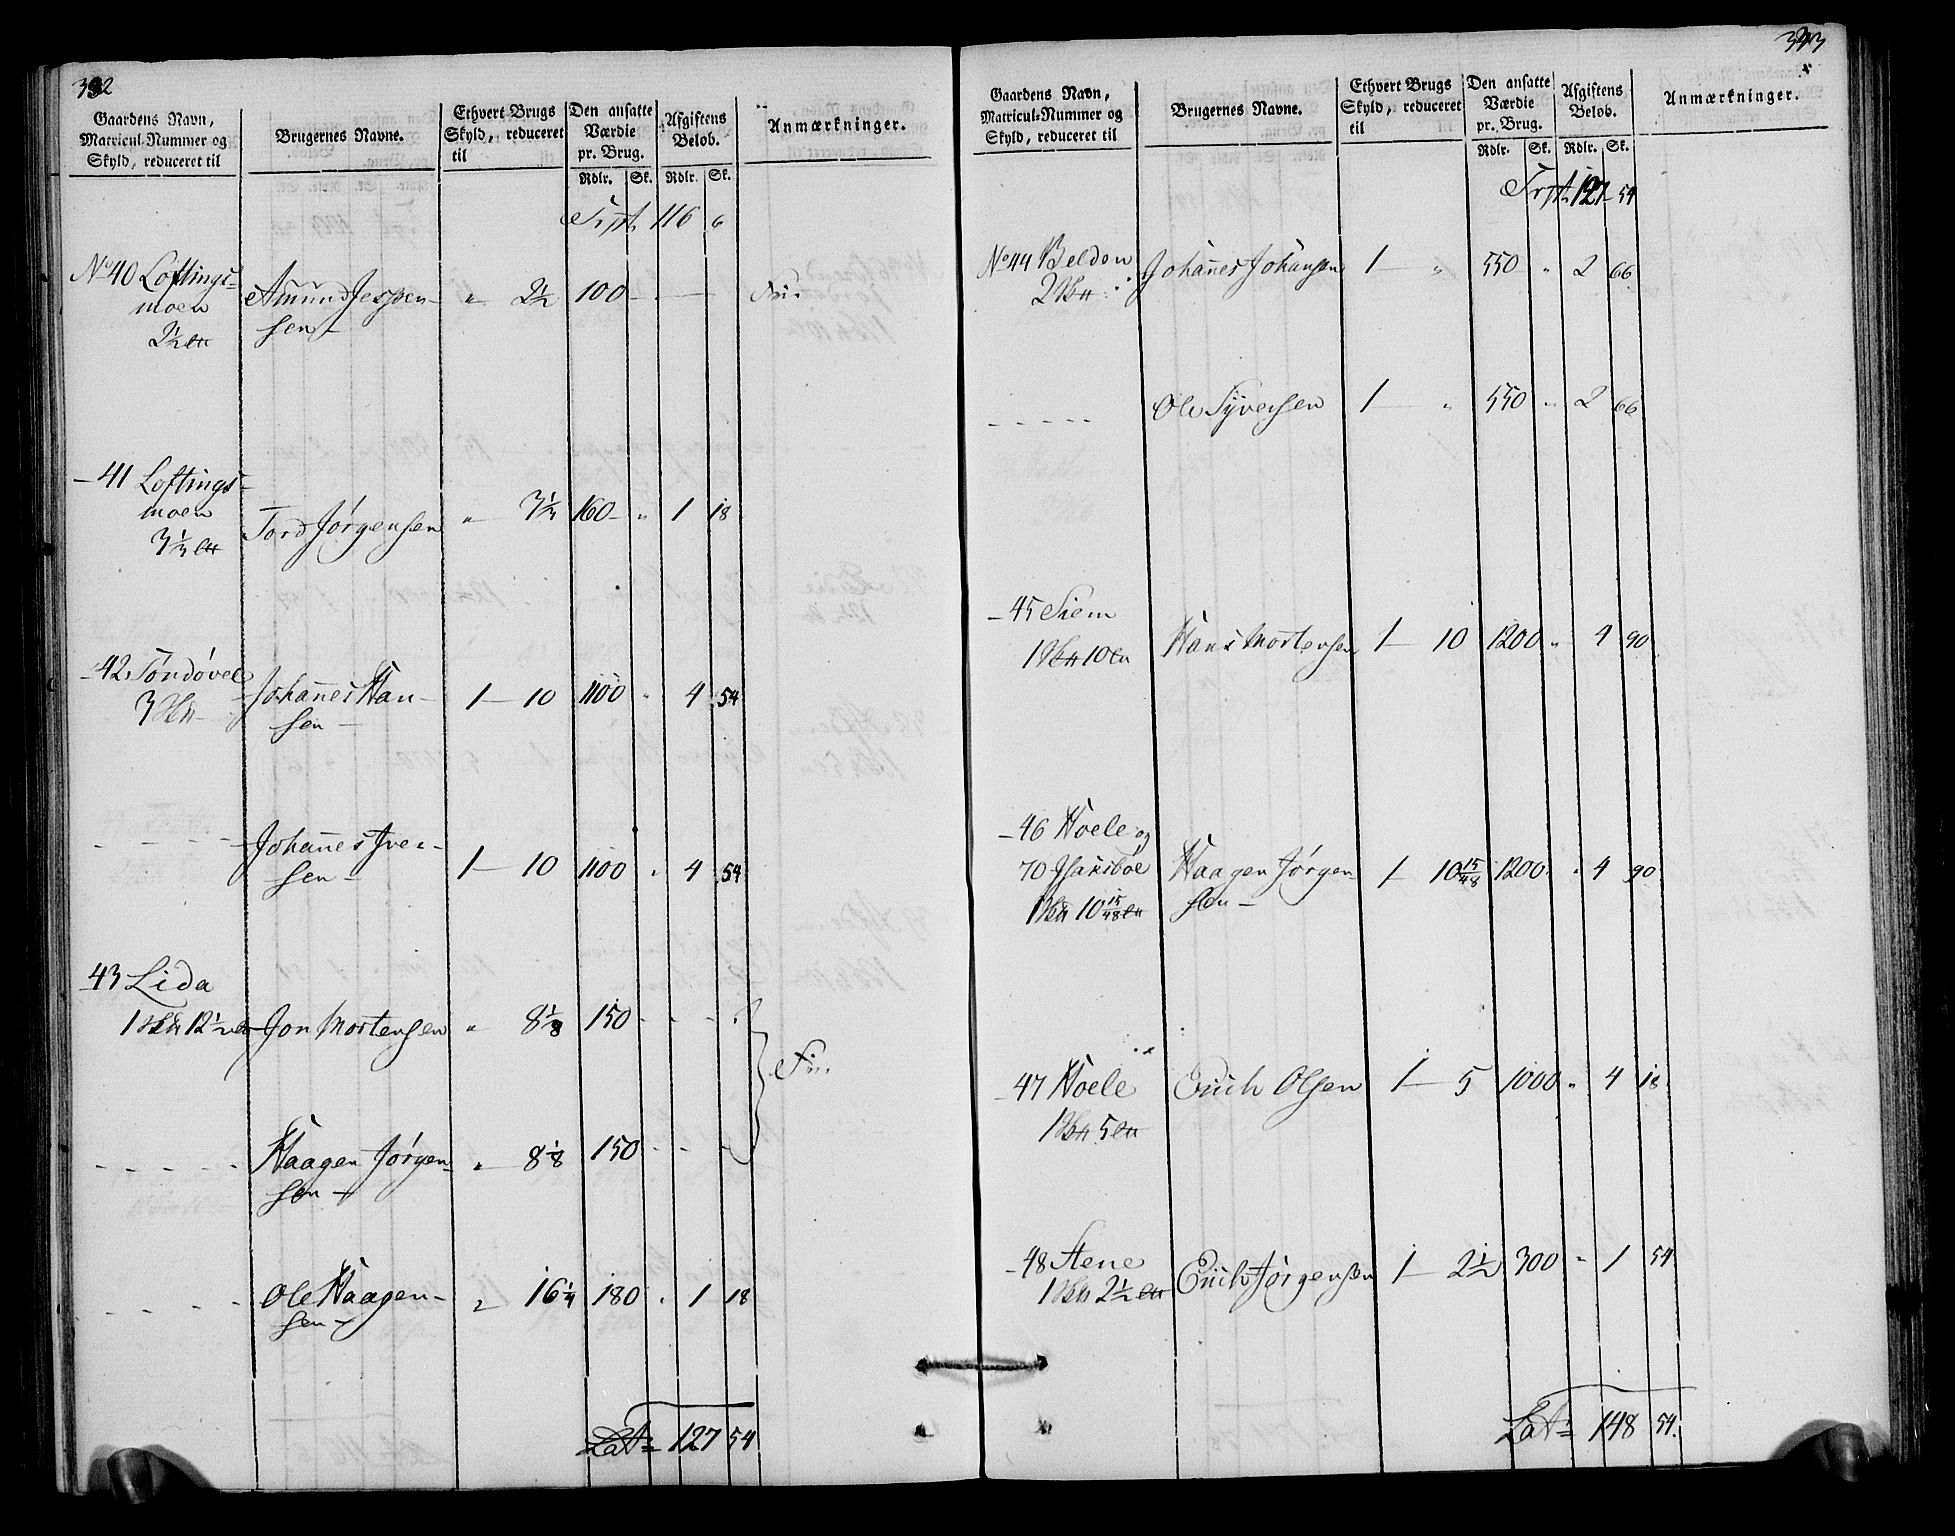 392
Gaardens Navn, Matricul-Nummer og Skyld, reduceret til | Brugernes Navne. | Ethvert Brugs Skyld, reduceret til | Den ansatte Værdie pr. Brug. | Afgiftens Beløb. | Anmærkninger.
Rdlr. | Sk. | Rdlr. | Sk.
Trpt. 116 6
No 40 Loftings-
moen
2½
Amund Jespen-
sen
" 2½ 100 - - — Frie
- 41 Loftings-
moen
3⅓
Tord Jørgensen " 3⅓ 160 - " 1 18
- 42 Tøndøvel
3
Johannes Han-
sen
1 - 10 1100 " 4 54
- - - - -
Johannes Iver-
sen
1 - 10 1100 " 4 54
43 Lida
1 12½
Jon Mortensen " 8⅛ 150 - - -
Frie
- - - - - Haagen Jørgen-
sen
" 8⅛ 150 - - -
- - - - - Ole Haagen-
sen
" 16¼ 180 " 1 18
Lat= 127 54
393
Gaardens Navn, Matricul-Nummer og Skyld, reduceret til | Brugernes Navne. | Ethvert Brugs Skyld, reduceret til | Den ansatte Værdie pr. Brug. | Afgiftens Beløb. | Anmærkninger.
Rdlr. | Sk. | Rdlr. | Sk.
Trpt. 127 54
No 44 Belden
2
Johannes Johansen 1 - " 550 " 2 66
- - - - - Ole Syversen 1 - " 550 " 2 66
- 45 Siem
1 10
Hans Mortensen 1 - 10 1200 " 4 90
- 46 Hoele og
70 Isaksbøe
1 10 15/48
Haagen Jørgen-
sen
1 - 10 15/48 1200 " 4 90
- 47 Hoele
1 5
Erich Olsen 1 - 5 1000 " 4 18
- 48 Stene
1 2½
Erich Jørgensen 1 - 2½ 300 " 1 54
Lat= 148 54.